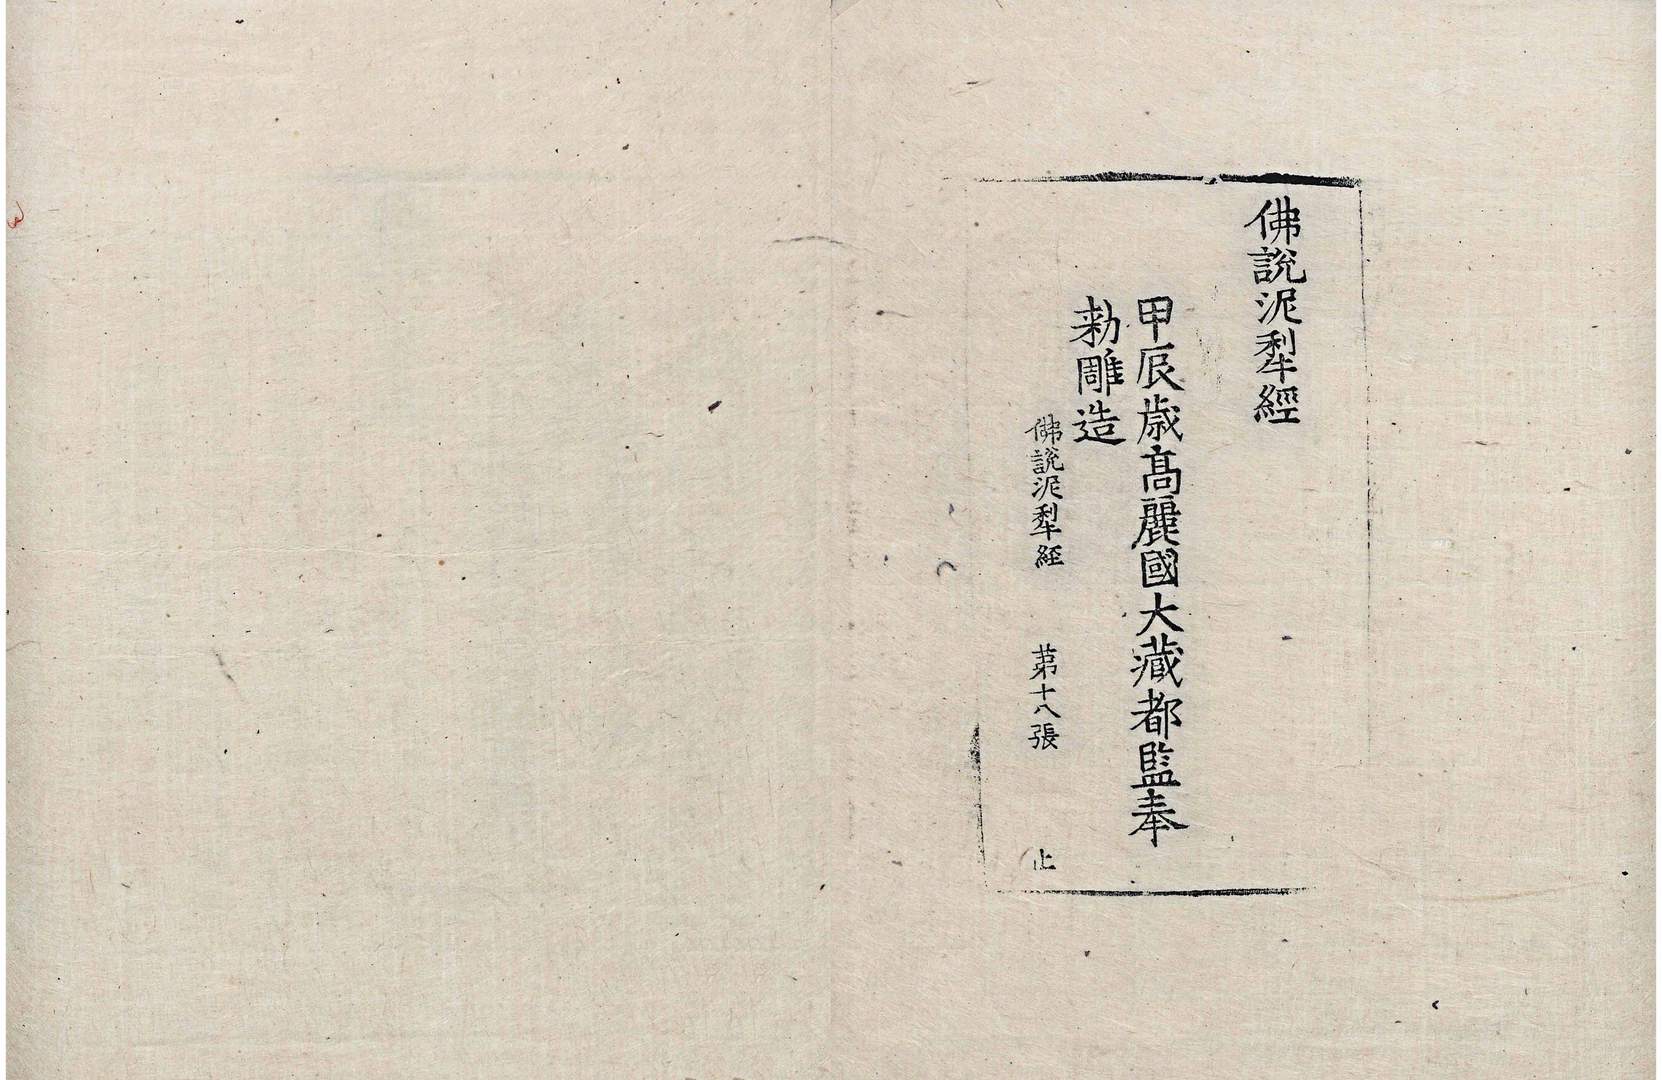 佛說泥犁經
甲辰歲高麗國大藏都監奉
勑雕造
佛說泥犁經 第十八張 止